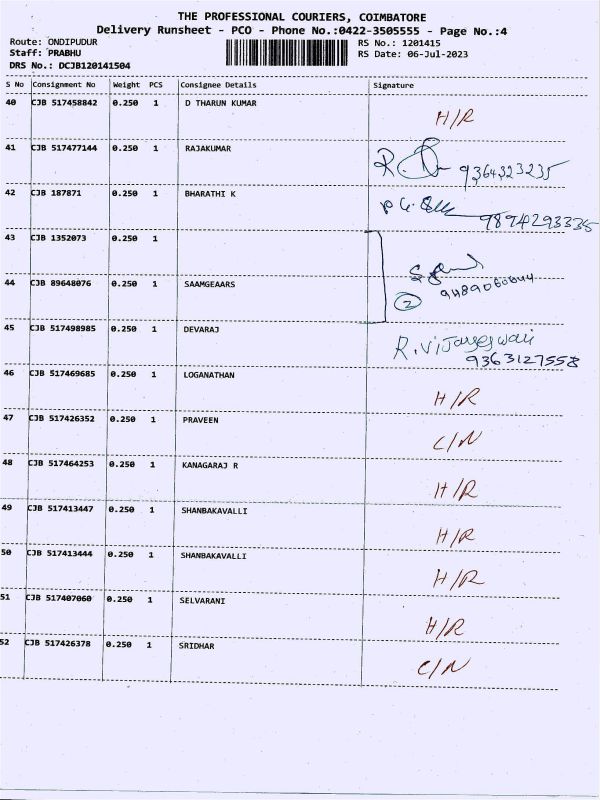 THE PROFESSIONAL COURIERS, COIMBATORE
Delivery Runsheet - PCO - Phone No.:0422-3505555 - Page No.:4
Route: ONDIPUDUR RS No.: 1201415
Staff: PRABHU RS Date: 06-Jul-2023
DRS No.: DCJB120141504
S No Consignment No Weight PCS Consignee Details Signature
40 CJB 517458842 0.250 1 D THARUN KUMAR H/R
41 CJB 517477144 0.250 1 RAJAKUMAR 9364323235
42 CJB 187871 0.250 1 BHARATHI K 9894293335
43 CJB 1352073 0.250 1
44 CJB 89648076 0.250 1 SAAMGEAARS 2 9489060644
45 CJB 517498985 0.250 1 DEVARAJ R. Vijayeswari
9363127558
46 CJB 517469685 0.250 1 LOGANATHAN H/R
47 CJB 517426352 0.250 1 PRAVEEN C/N
48 CJB 517464253 0.250 1 KANAGARAJ R H/R
49 CJB 517413447 0.250 1 SHANBAKAVALLI H/R
50 CJB 517413444 0.250 1 SHANBAKAVALLI H/R
51 CJB 517407060 0.250 1 SELVARANI H/R
52 CJB 517426378 0.250 1 SRIDHAR C/N